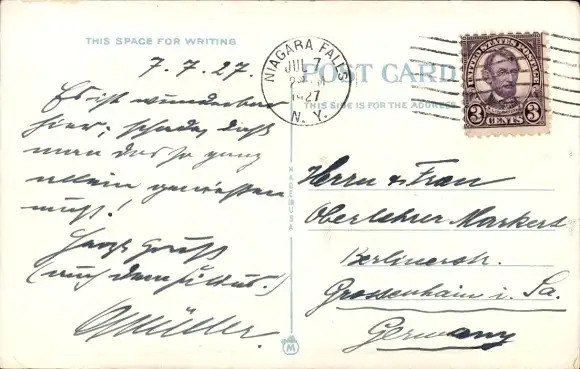 THIS SPACE FOR WRITING
7.7.27.
Es ist wunderbar
hier, schade, daß
man das so ganz
allein genießen
muß!
Herzl. Gruß
(auch dem Julius.)
GMüller
MADE IN USA
M
NIAGARA FALLS
JUL 7
1927
N. Y.
POST CARD
THIS SIDE IS FOR THE ADDRESS
UNITED STATES POSTAGE
3 CENTS 3
Herrn & Frau
Oberlehrer Markert
Berlinerstr.
Grossenhain i. Sa.
Germany